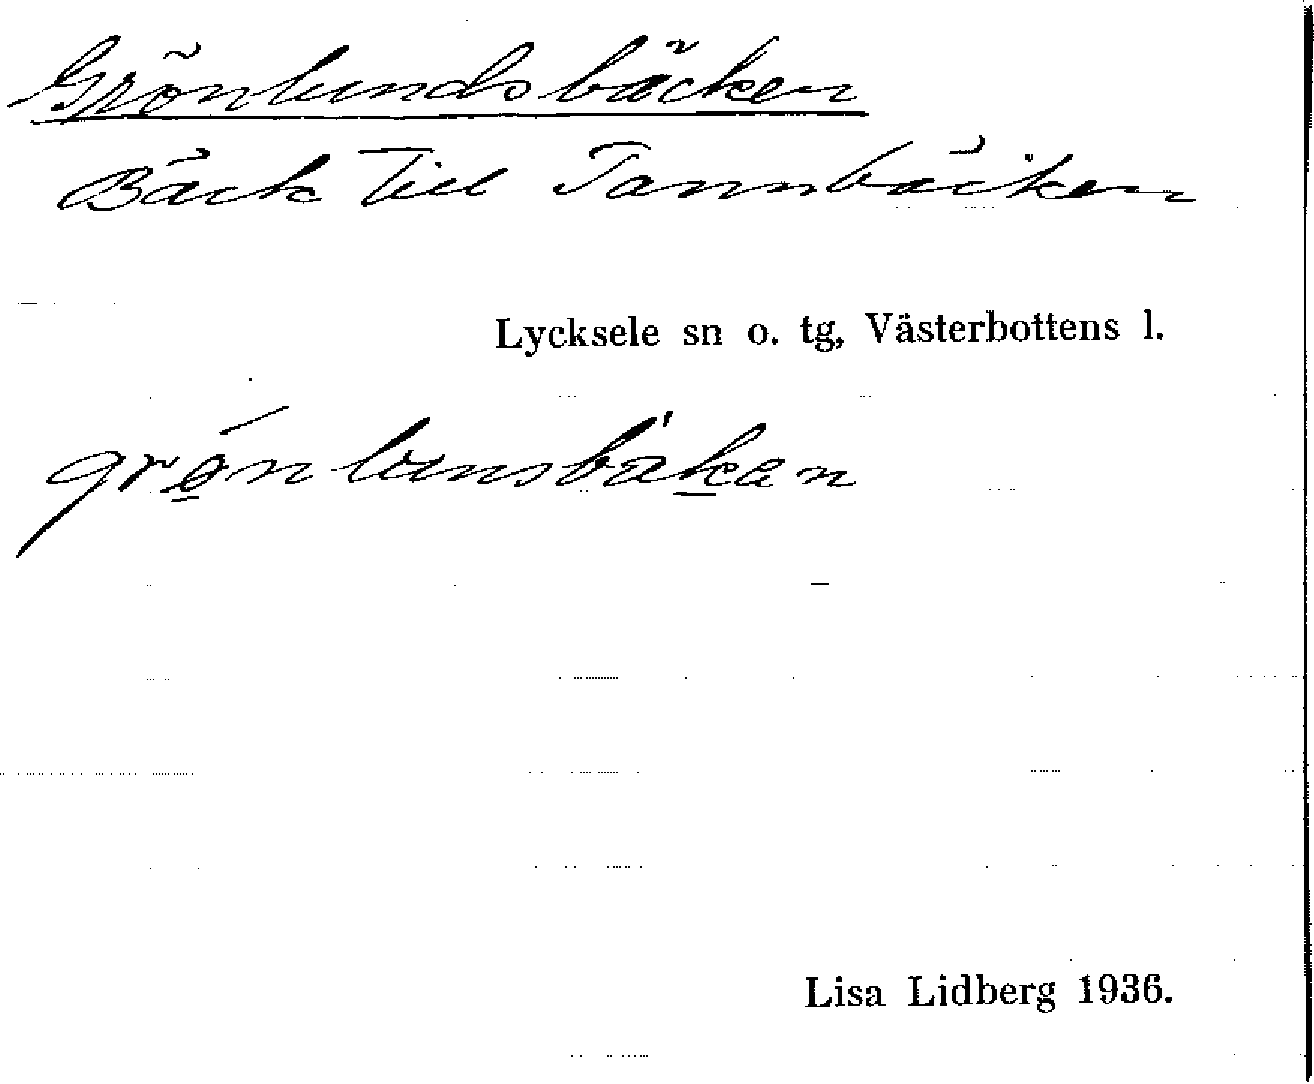 Grönlundsbäcken
Bäck till Tannbäcken
Lycksele sn o. tg, Västerbottens l.
grǿ̱nlunsbäḵen
Lisa Lidberg 1936.